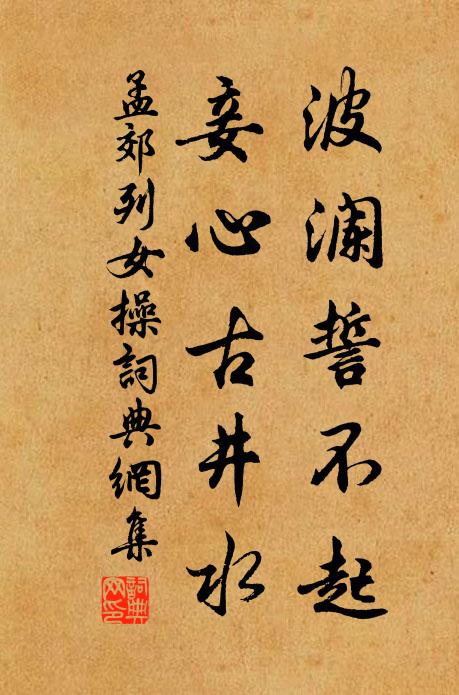 波澜誓不起
妾心古井水
孟郊列女操詞典網集
詞典網印